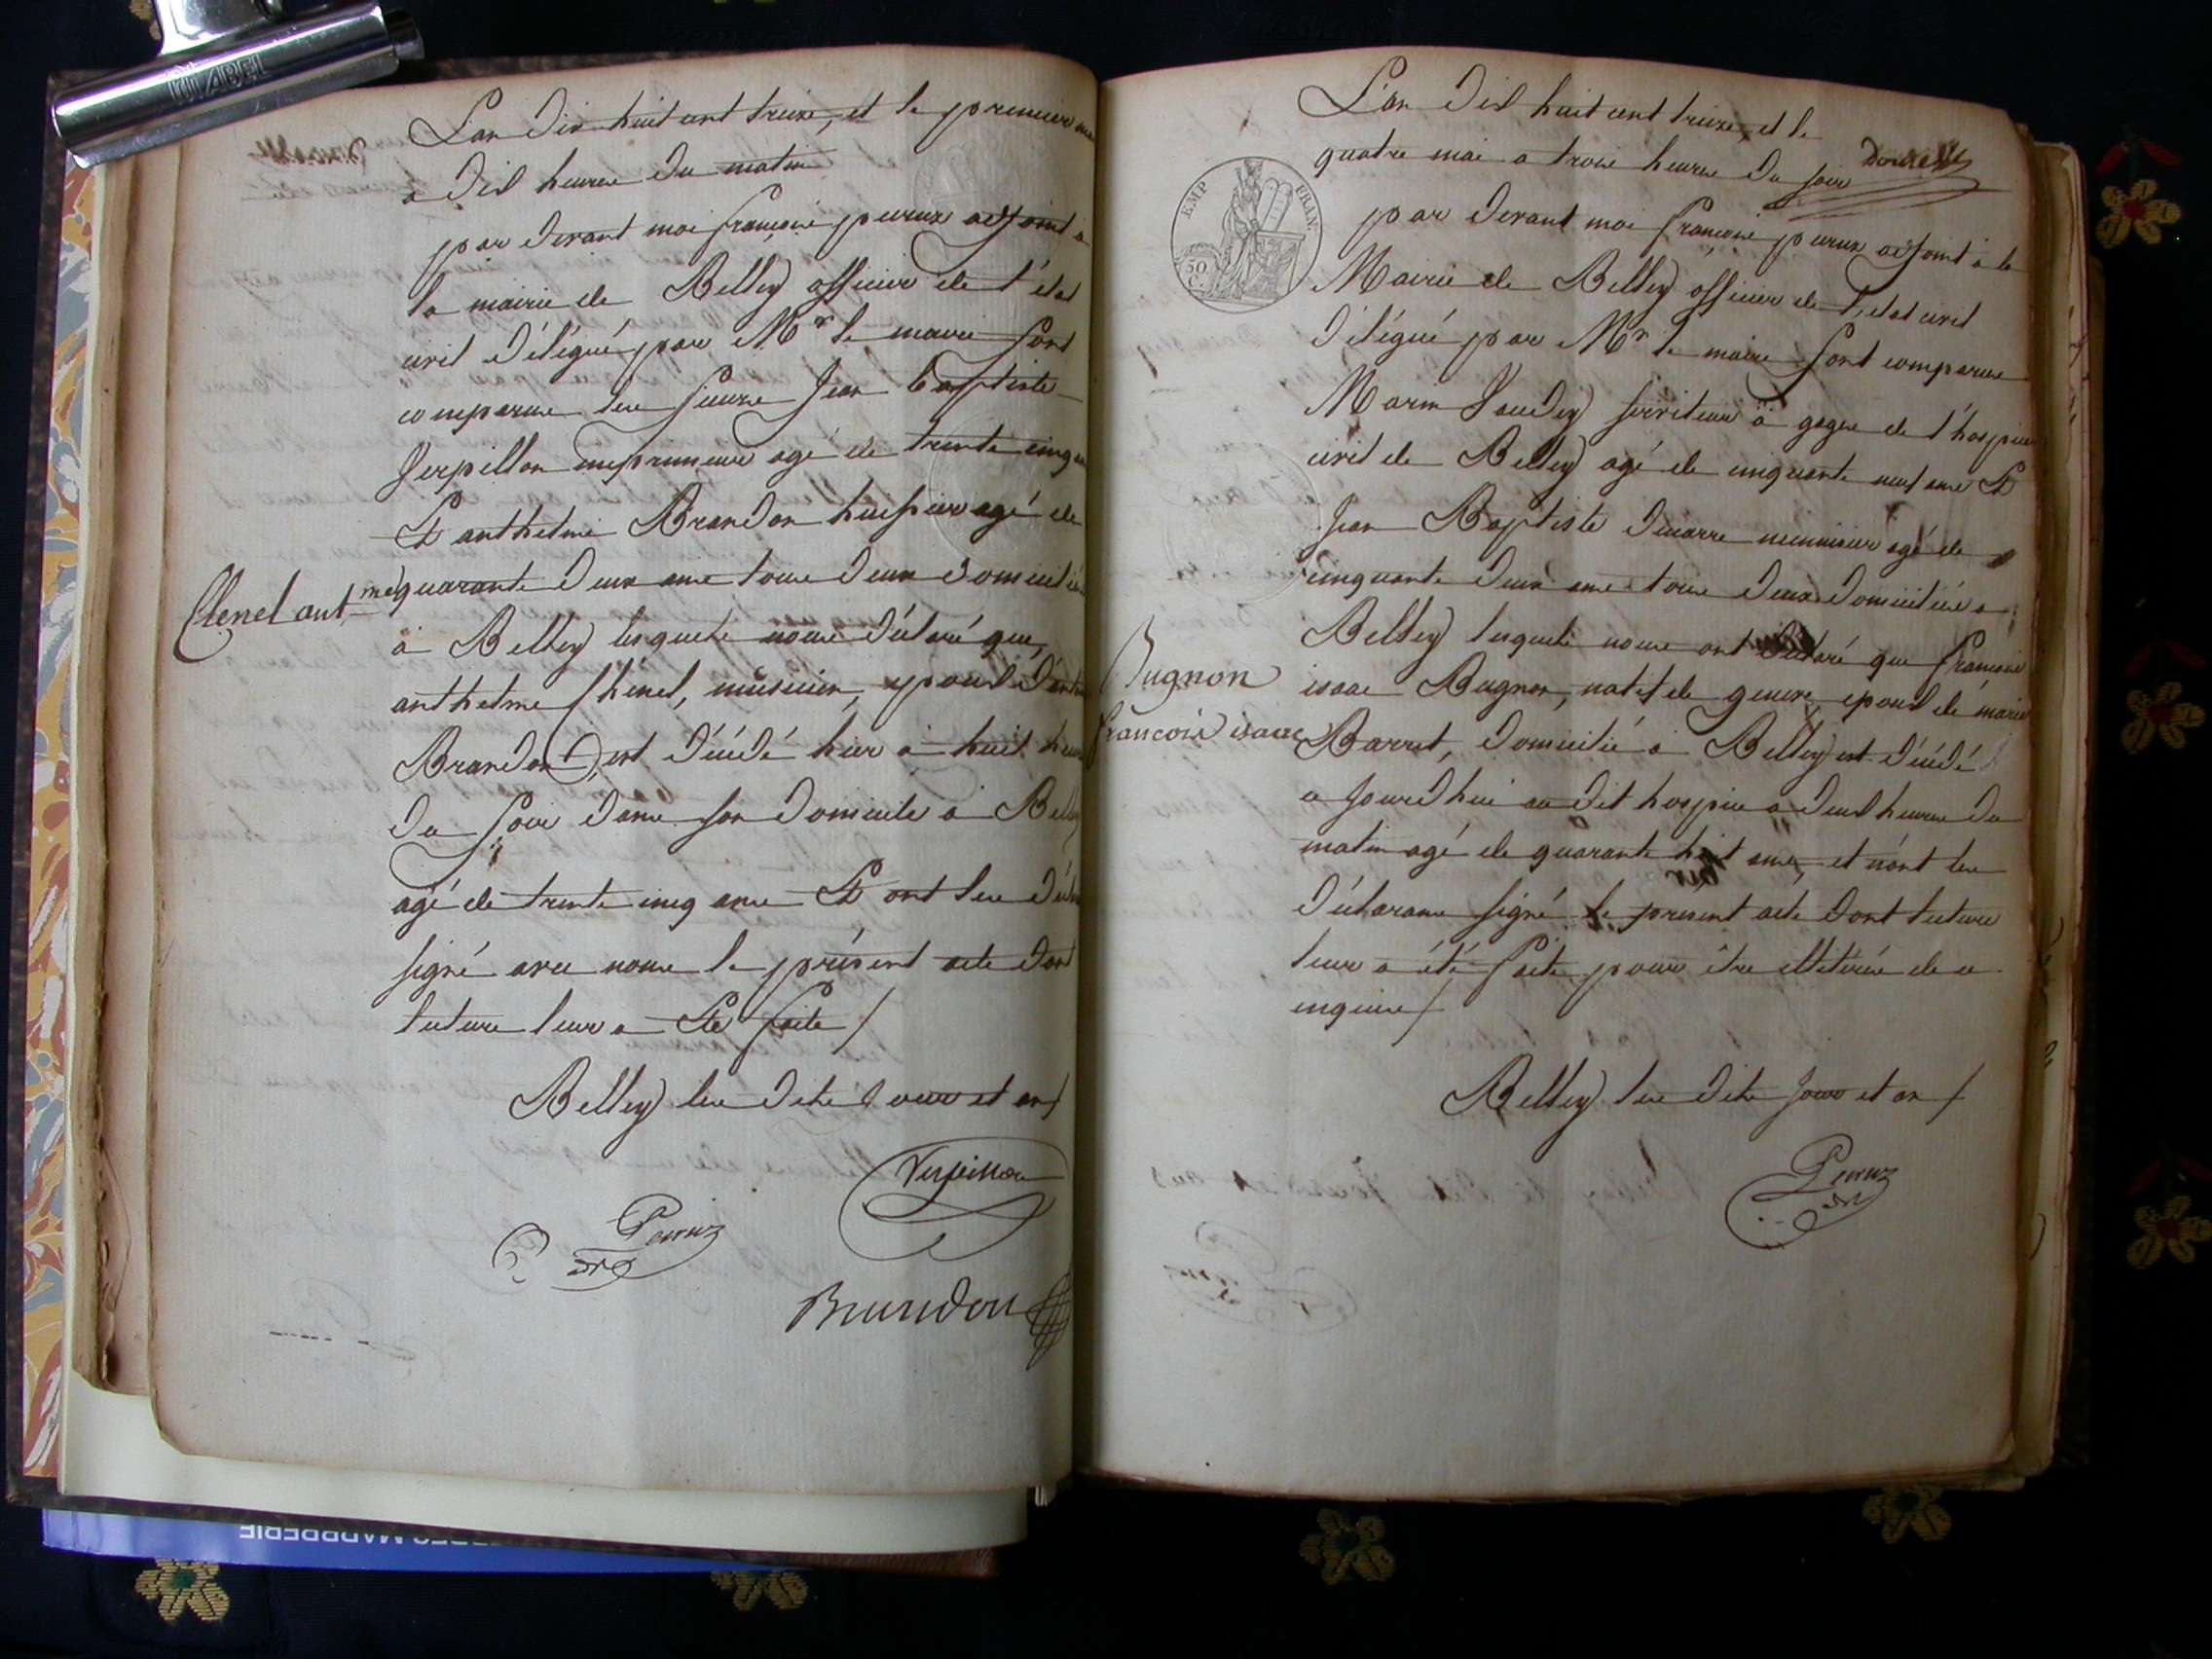 L'an dix huit cent treize, et le premier mai
a dix heures du matin
par devant moi françois peruz adjoint à
la mairie de Belley officier de l'état
civil délégué par Mr le maire sont
comparus les sieurs Jean baptiste
Verpillon imprimeur agé de trente cinq
Et anthelme Brandon huissier agé de
quarante deux ans tous deux domiciliés
Clenel ant.me
à Belley lesquels nous déclaré que
anthelme Chenel, musicien, epoux d'
Brandon, est décédé hier à huit heures
du soir dans son domicile à Belley
agé de trente cinq ans Et ont les
signé avec nous le présent acte dont
lecture leur a Eté faite /
Belley les dits jour et an /
Verpillon
Peruz
Brandon
L'an dix huit cent treize, et le
quatre mai a trois heures du soir
par devant moi françois peruz adjoint à la
Mairie de Belley officier de l'etat civil
délégué par Mr le maire sont comparus
Marin serviteur à gages de l'hospice
civil de Belley agé de cinquante neuf ans Et
Jean Baptiste menuisier agé de
cinquante deux ans tous deux domiciliés a
Belley lesquels nous ont déclaré que françois
Bugnon
francois isaac
isaac Bugnon, natif de geneve, epoux de marie
Barret, domicilié à Belley est décédé
a jourdhui au dit hospice a deux heures du
matin agé de quarante huit ans, et n'ont les
déclarans signé le présent acte dont lecture
leur a été faite pour être illitérés de ce
enquis /
Belley les dits jour et an /
Peruz
EMP FRAN.
50 C.
OLABEL